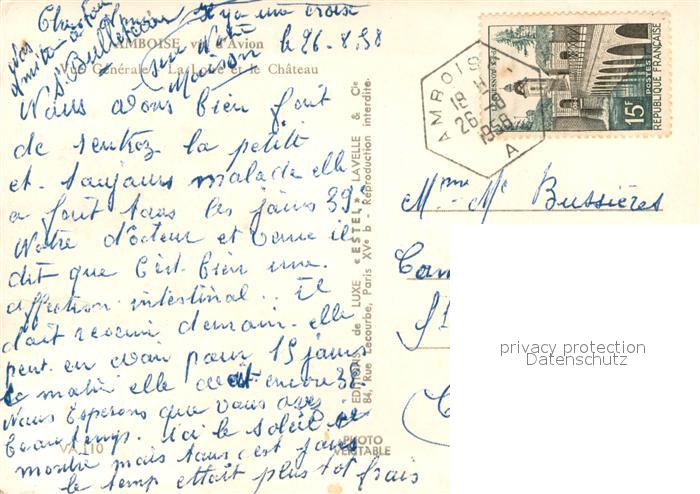 Chez tou
Il y a une croix
AMBOISE vue d'Avion
le 26.8.58
Vue Générale - La Loire et le Château
sur Notre
Maison
Nous avons bien fait
de rentrez la petite
et toujours malade elle
a fait tous les jours 39°
Notre docteur et venue il
dit que c'est bien une
affection intestinal.. il
doit revenir demain. elle
peut en avoir pour 15 jours
ce matin elle avait encore 38
Nous esperons que vous avez
beau temps. ici le soleil se
montre mais tous ces jours
le temp ettait plus tot frais
VA 110
PHOTO
VERITABLE
EDITIONS de LUXE « ESTEL » LAVELLE & Cie
84, Rue Lecourbe, Paris XVe b - Reproduction interdite
AMBOISE
18 H
26-8
1958
A
15F
REPUBLIQUE FRANÇAISE
Mme Mr Bussières
privacy protection
Datenschutz